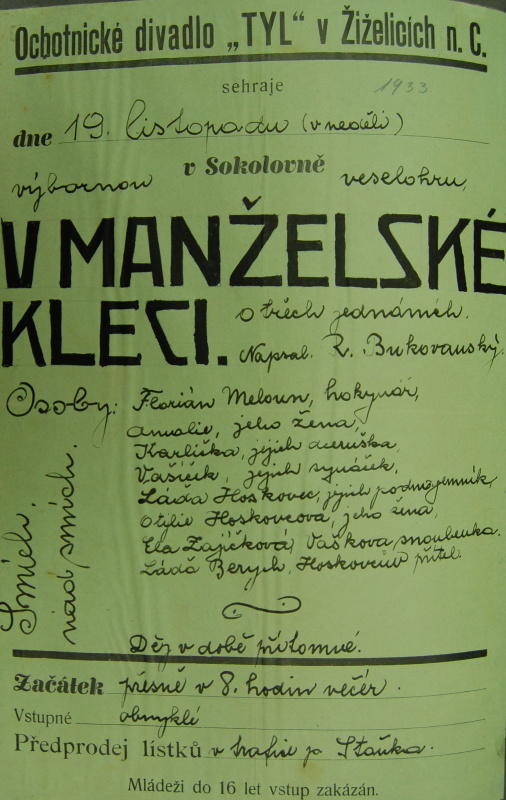 Ochotnické divadlo „TYL" v Žiželicích n. C.
sehraje 1933
dne 19. listopadu (v neděli)
v Sokolovně
výbornou veselohru,
V MANŽELSKÉ
KLECI. o třech jednáních.
Napsal. R. Bukovanský.
Osoby: Florián Meloun, hokynář,
Amalie, jeho žena,
Karlička, jejich dceruška,
Vašíček, jejich synáček,
Láďa Hoskovec, jejich podnájemník,
Otylie Hoskovcová, jeho žena,
Ela Zajíčková, Vaškova snoubenka.
Láďa Berych, Hoskovcův přítel.
Smích.
nad smích.
Děj v době přítomné.
Začátek přesně v 8. hodin večer.
Vstupné obvyklé
Předprodej lístků v trafice p. Staňka.
Mládeži do 16 let vstup zakázán.